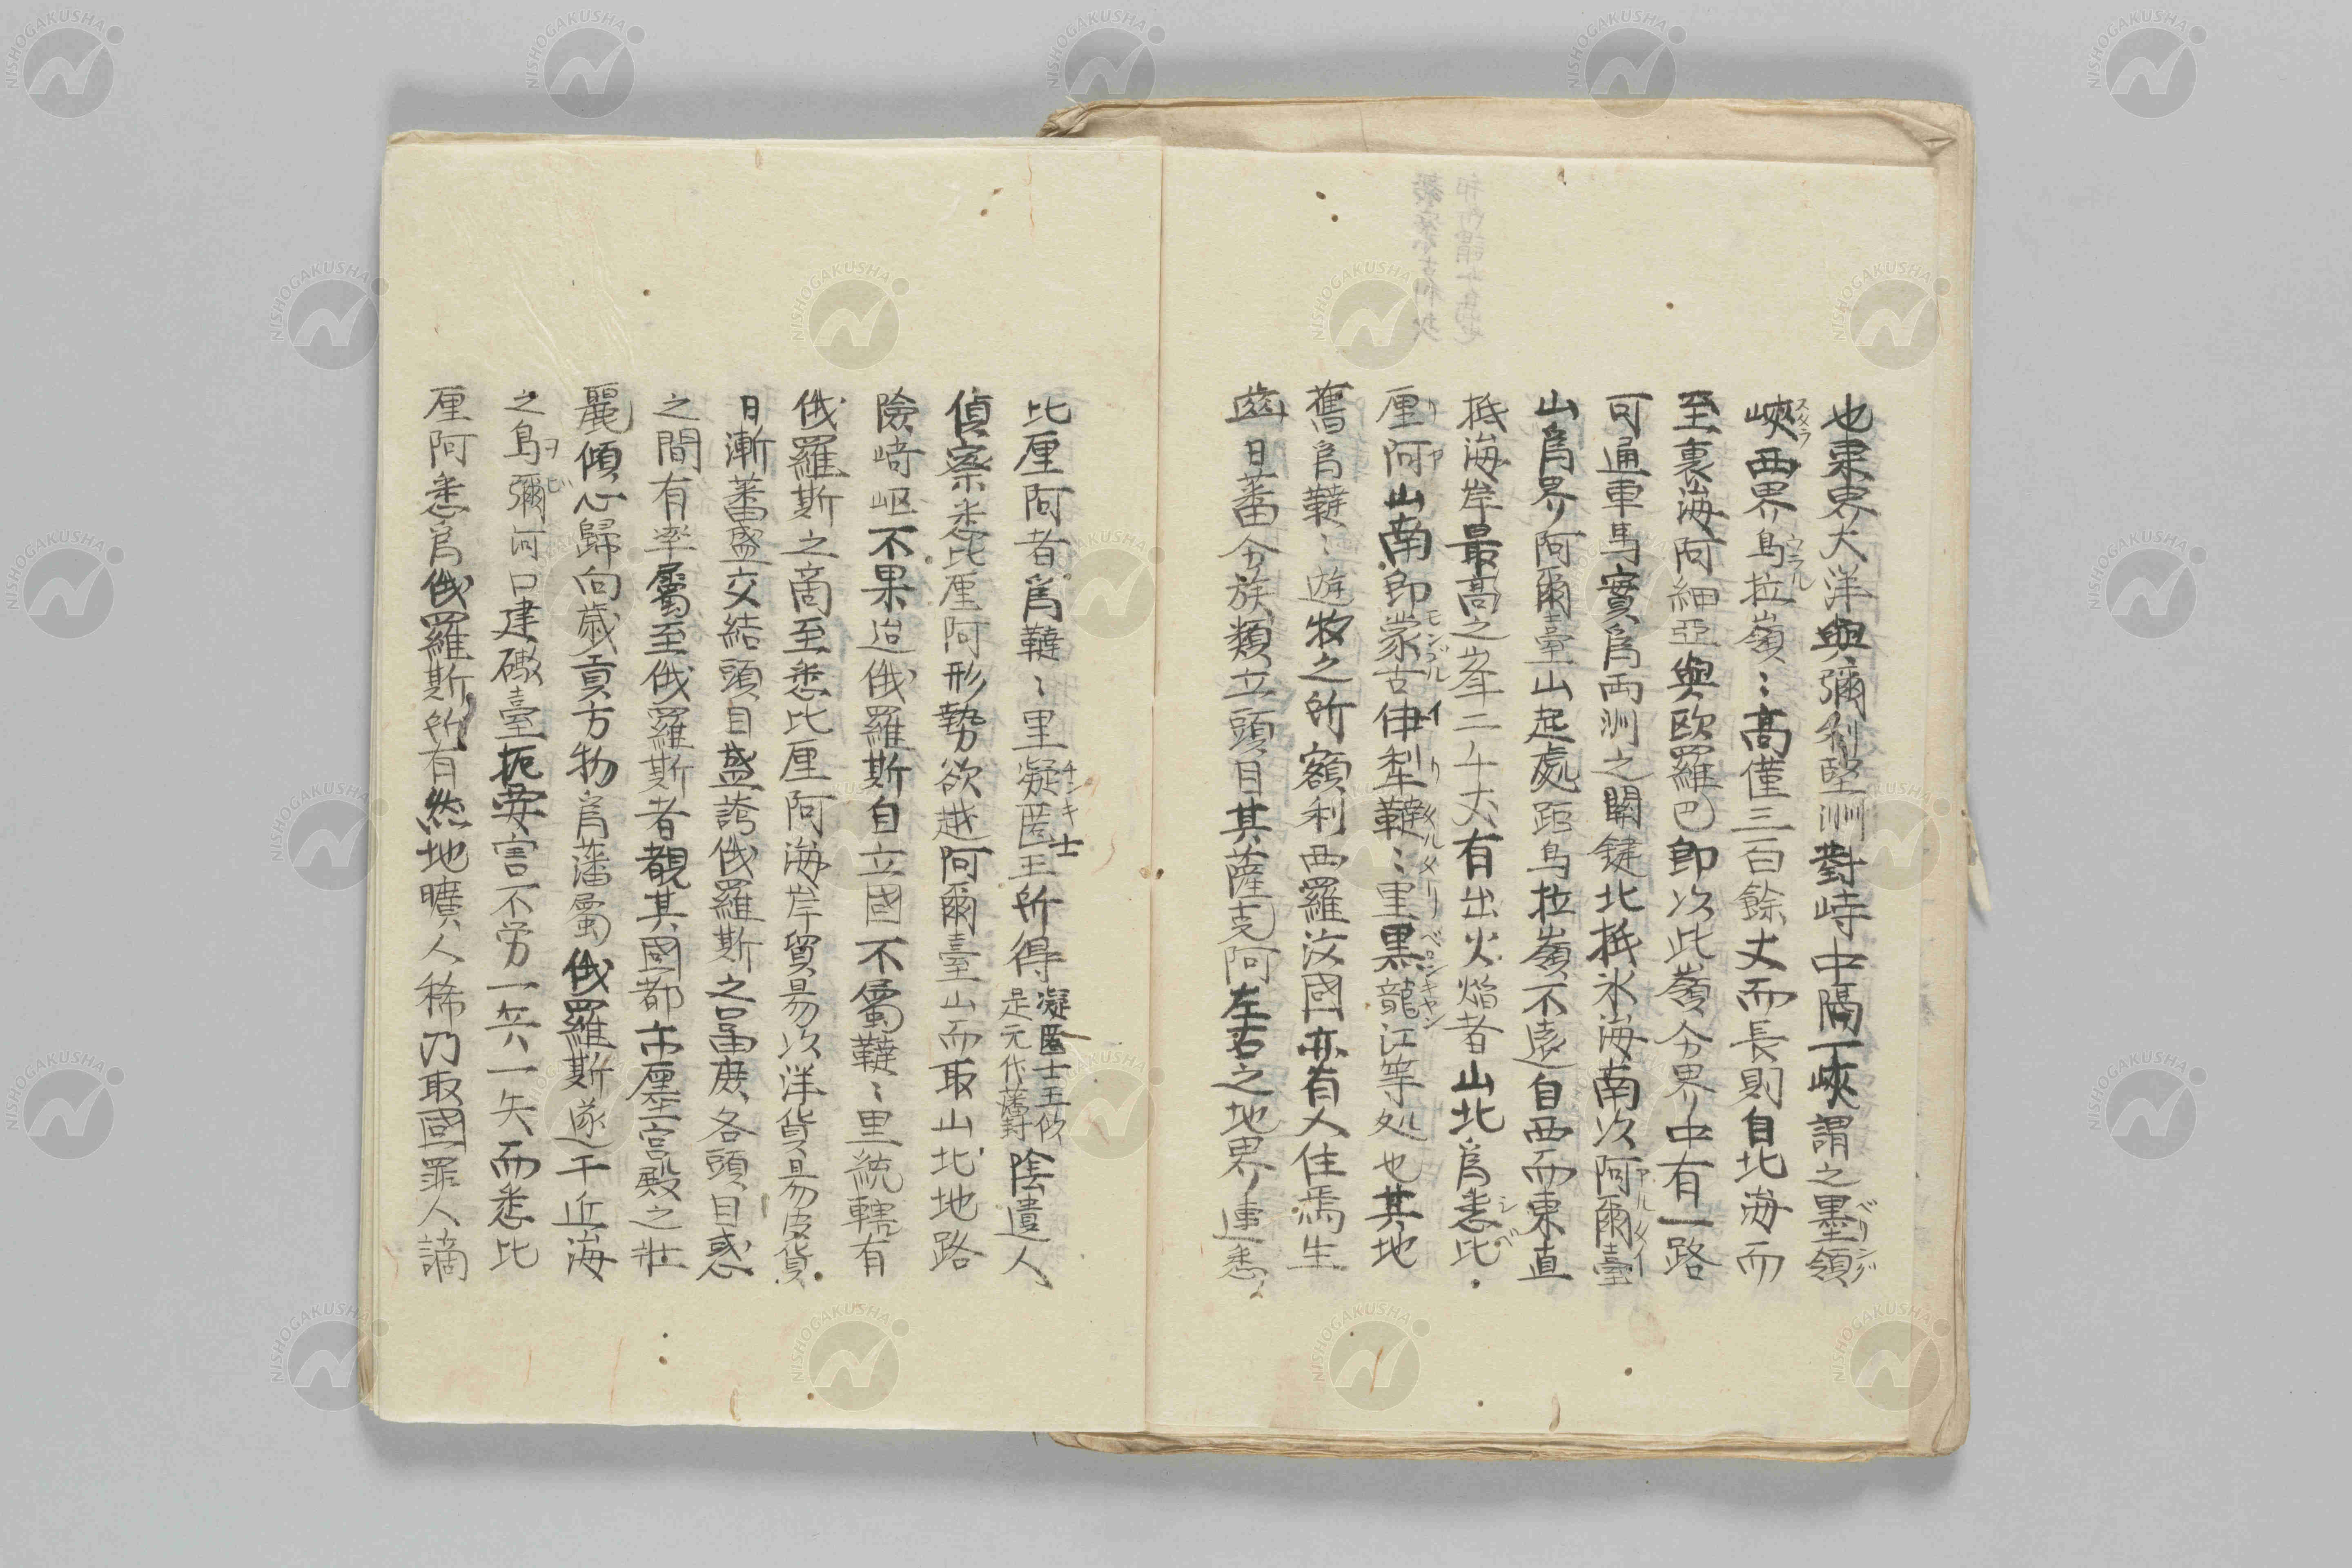 也東界大洋與彌利堅洲對峙中隔一峽謂之墨領
峽西界烏拉嶺〻高僅三百餘丈而長則自北海而
至裏海阿細亞與欧羅巴即以此嶺分界中有一路
可通車馬實爲両洲之關鍵北抵氷海南以阿爾臺
山爲界阿爾臺山起處距烏拉嶺不遠自西而東直
抵海岸最高之峯二千丈有出火焰者山北爲悉比
厘阿山南即蒙古伊犁韃〻里黒龍江等処也其地
舊爲韃〻遊牧之所額利西羅汶國亦有人住焉生
齒日蕃分族類立頭目其薩克阿左右之地界連悉
比厘阿者爲韃〻里凝匿王所得凝匿士王似是元代藩封陰遣人
偵察悉比厘阿形勢欲越阿爾臺山而取山北地路
險崎嶇不果迨俄羅斯自立國不屬韃〻里統轄有
俄羅斯之商至悉比厘阿海岸貿易以洋貨易皮貨
日漸蕃盛交結頭目盛誇俄羅斯之富庶各頭目惑
之間有率屬至俄羅斯者觀其國都市厘宮殿之壮
麗傾心歸向歳貢方物爲藩屬俄羅斯遂于近海
之烏彌河口建礮臺扼要害不勞一兵一矢而悉比
厘阿悉爲俄羅斯所有然地曠人稀乃取國罪人謫
スタラ
ウラル
ベリング
アルタイ
シベ
リヤ
モンゴル
イリ
タルタリ
チンキ士
ヲビ
NISHOGAKUSHA